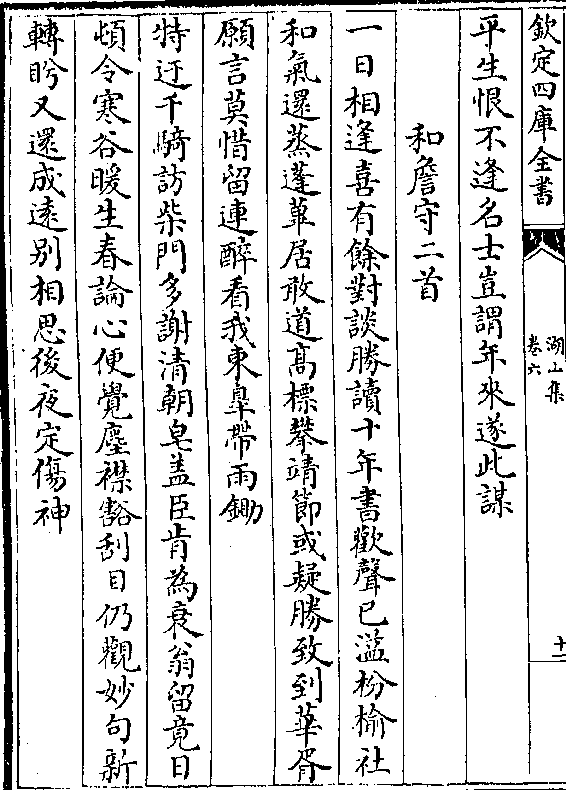 欽定四庫全書
湖山集
卷六
十二
平生恨不逢名士豈謂年來遂此謀
和詹守二首
一日相逢喜有餘對談勝讀十年書歡聲已溢枌榆社
和氣還蒸蓬蓽居敢道高標攀靖節或疑勝致到華胥
願言莫惜留連醉看我東臯帶雨鋤
特迂千騎訪柴門多謝清朝皂盖臣肯為衰翁留竟日
頓令寒谷暖生春論心便覺塵襟豁刮目仍觀妙句新
轉盻又還成遠别相思後夜定傷神